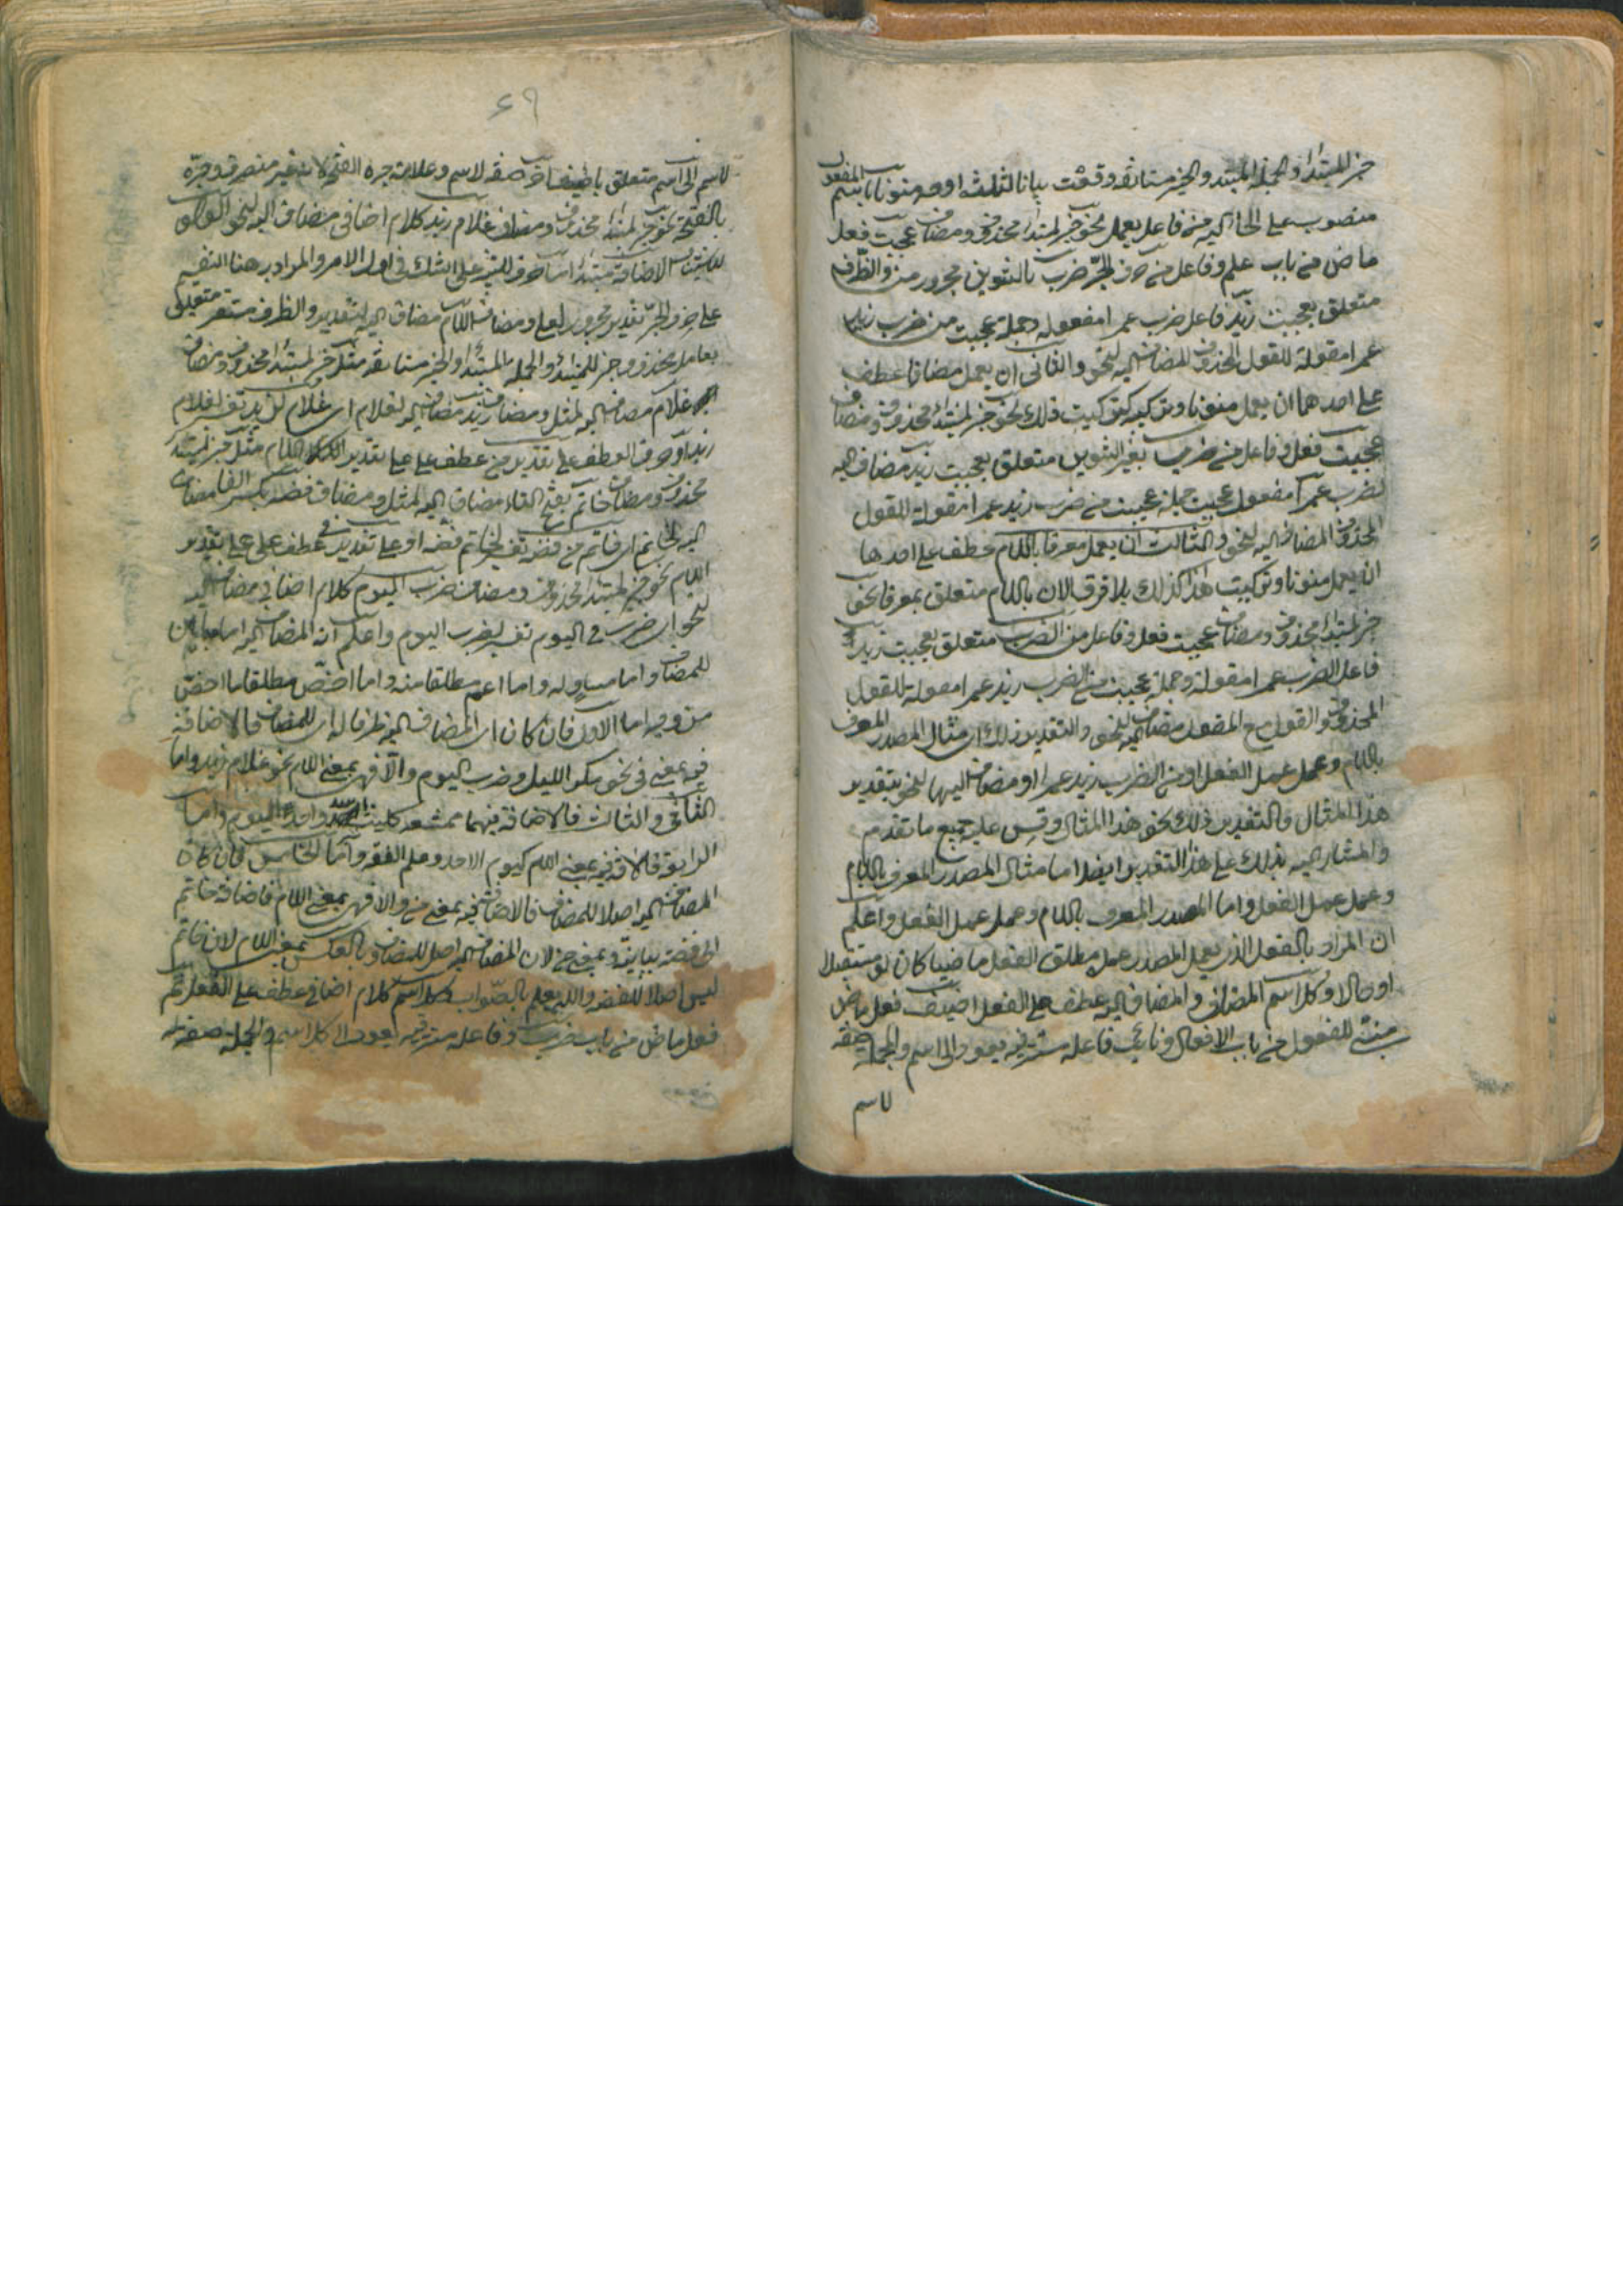 خبر للمبتدا والجملة المبتدا والخبر مستانفة وقعت بيانا لثلثة اوجه منونا المفعول
منصوب على الحالية من فاعل يعمل نحو خبر لمبتدا محذوف ومضاف عجبت فعل
ماض من باب علم وفاعل من حرف الجر ضرب بالتنوين مجرور من والظرف
متعلق بعجبت زيد فاعل ضرب عمرا مفعوله وجملة عجبت من ضرب زيد
عمرا مقولة للقول المحذوف المضاف اليه لنحو والثانى ان يعمل مضافا عطف
على احدهما ان يعمل منونا وتركيبه كتركيب ذلك نحو خبر لمبتدا محذوف ومضاف
عجبت فعل وفاعل من ضرب بغير التنوين متعلق بعجبت زيد مضاف اليه
لضرب عمرا مفعول عجبت جملة عجبت من ضرب زيد عمرا مقولة للقول
المحذوف المضاف اليه لنحو والثالث ان يعمل معرفا باللام عطف على احدها
ان يعمل منونا وتركيب هذا كذلك بلا فرق الان باللام متعلق بمعرفا نحو
خبر لمبتدا محذوف ومضاف عجبت فعل وفاعل من الضرب متعلق بعجبت زيد
فاعل الضرب عمرا مقولة وجملة عجبت من الضرب زيد عمرا مقولة للقول
المحذوف والقول مع المفعول مضاف اليه لنحو والتقدير ذلك اى مثال المصدر المعرف
باللام وعمل عمل الفعل او من الضرب زيد عمرا او مضاف اليها لنحو بتقدير
هذا المثال فالتقدير ذلك نحو هذا المثال وقس عليه جميع ما تقدم
والمشار اليه بذلك على هذا التقدير ايضا اما مثال المصدر المعرف باللام
وعمل عمل الفعل واما المصدر المعرف باللام وعمله عمل الفعل واعلم
ان المراد بالفعل الذى يعمل المصدر عمله مطلق الفعل ماضيا كان او مستقبلا
او حالا وكل اسم المضاف والمضاف اليه عطف على الفعل اضيف فعل ماض
مبنى للمفعول من باب الافعال ونائب فاعله مستتر فيه يعود الى اسم والجملة صفة
لاسم
٦٩
لاسم الى اسم متعلق باضيف اخر صفة لاسم وعلامة جره الفتح لانه غير منصرف وجره
بالفتح نحو خبر لمبتدا محذوف ومضاف غلام زيد كلام اضافى مضاف اليه لنحو
الاضافة مبتدا اما حرف على الشك فى احد الامر والمراد به هنا التقسيم
على حرف الجر تقدير مجرور لعلى ومضاف اللام مضاف اليه لتقدير والظرف مستقر متعلق
بعامل محذوف وخبر للمبتدا والجملة المبتدا والخبر مستانفة مثل خبر لمبتدا محذوف ومضاف
غلام مضاف اليه لمثل ومضاف زيد مضاف اليه لغلام اى غلام لزيد تفسير لغلام
زيد او حرف العطف على تقدير من عطف على على تقدير اللام مثل خبر لمبتدا
محذوف ومضاف خاتم بفتح التاء مضاف اليه لمثل ومضاف فضة بكسر الفا مضاف
اليه لخاتم اى خاتم من فضة تفسير لخاتم فضة او على تقدير فى عطف على على تقدير
اللام نحو خبر لمبتدا محذوف ومضاف ضرب اليوم كلام اضافى مضاف اليه
لنحو اى ضرب فى اليوم تفسير لضرب اليوم واعلم ان المضاف اليه اما مباين
للمضاف واما مساو له واما اعم مطلقا منه واما اخص مطلقا اما اخص
من وجه اما الاول فان كان اى المضاف اليه ظرفا له اى للمضاف فالاضافة
فيه بمعنى فى نحو مكر الليل وضرب اليوم والا فهى بمعنى اللام نحو غلام زيد واما
الثانى والثالث فالاضافة فيهما ممتنعة كليث اسد واحد اليوم واما
الرابع فالاضافة فيه بمعنى اللام كيوم الاحد وعلم الفقه واما الخامس فان كان
المضاف اليه اصلا للمضاف فالاضافة فيه بمعنى من والا فهى بمعنى اللام فاضافة خاتم
الى فضة بيانية بمعنى من لان المضاف اليه اصل للمضاف وبالعكس بمعنى اللام لان خاتم
ليس اصلا للفضة والله يعلم بالصواب كل اسم كلام اضافى عطف على الفعل تم
فعل ماض من باب ضرب وفاعله مستتر فيه يعود الى كل اسم والجملة صفة له